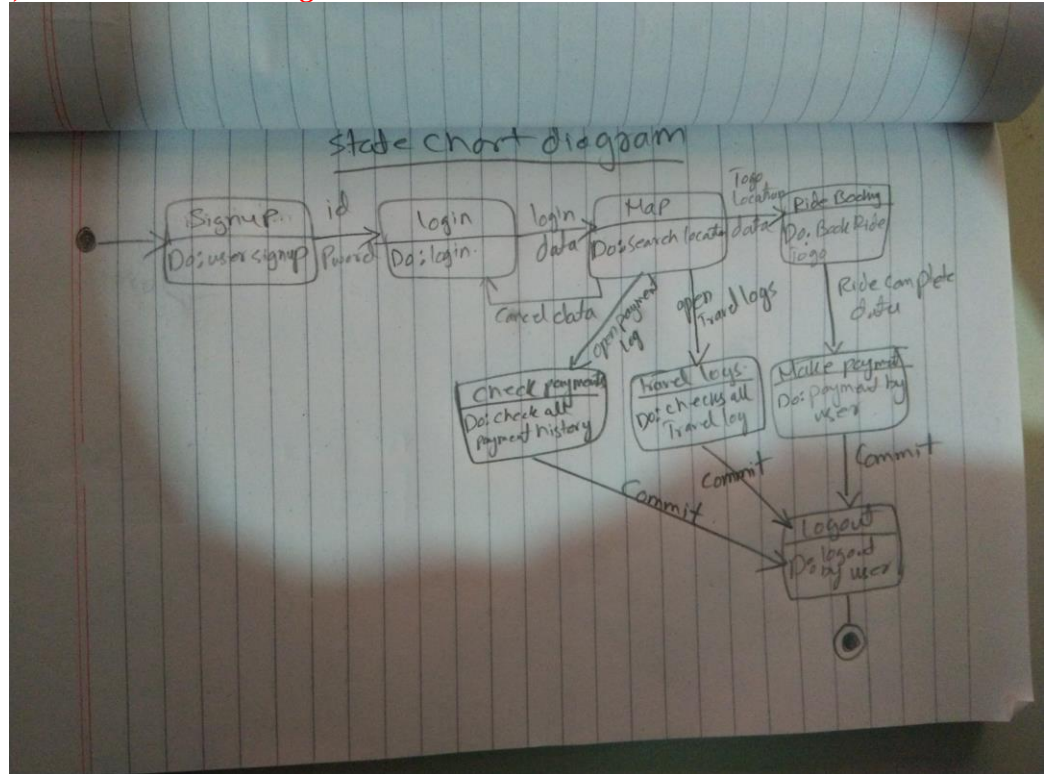 state chart diagram
Signup
Do: user signup
id
Pword
login
Do: login.
login
data
Map
Do: search locatio
Togo
Location
data
Ride Booking
Do: Book Ride
Togo
Cancel data
open payment
log
open
Travel logs
Ride complete
data
Check payments
Do: check all
payment history
Travel logs.
Do: checks all
Travel log
Make payment
Do: payment by
user
Commit
Commit
Commit
Logout
Do: logout
by user